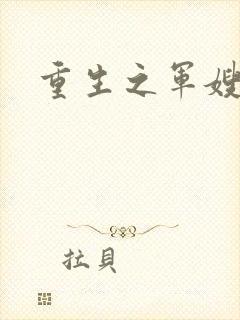 重生之軍嫂
拉貝